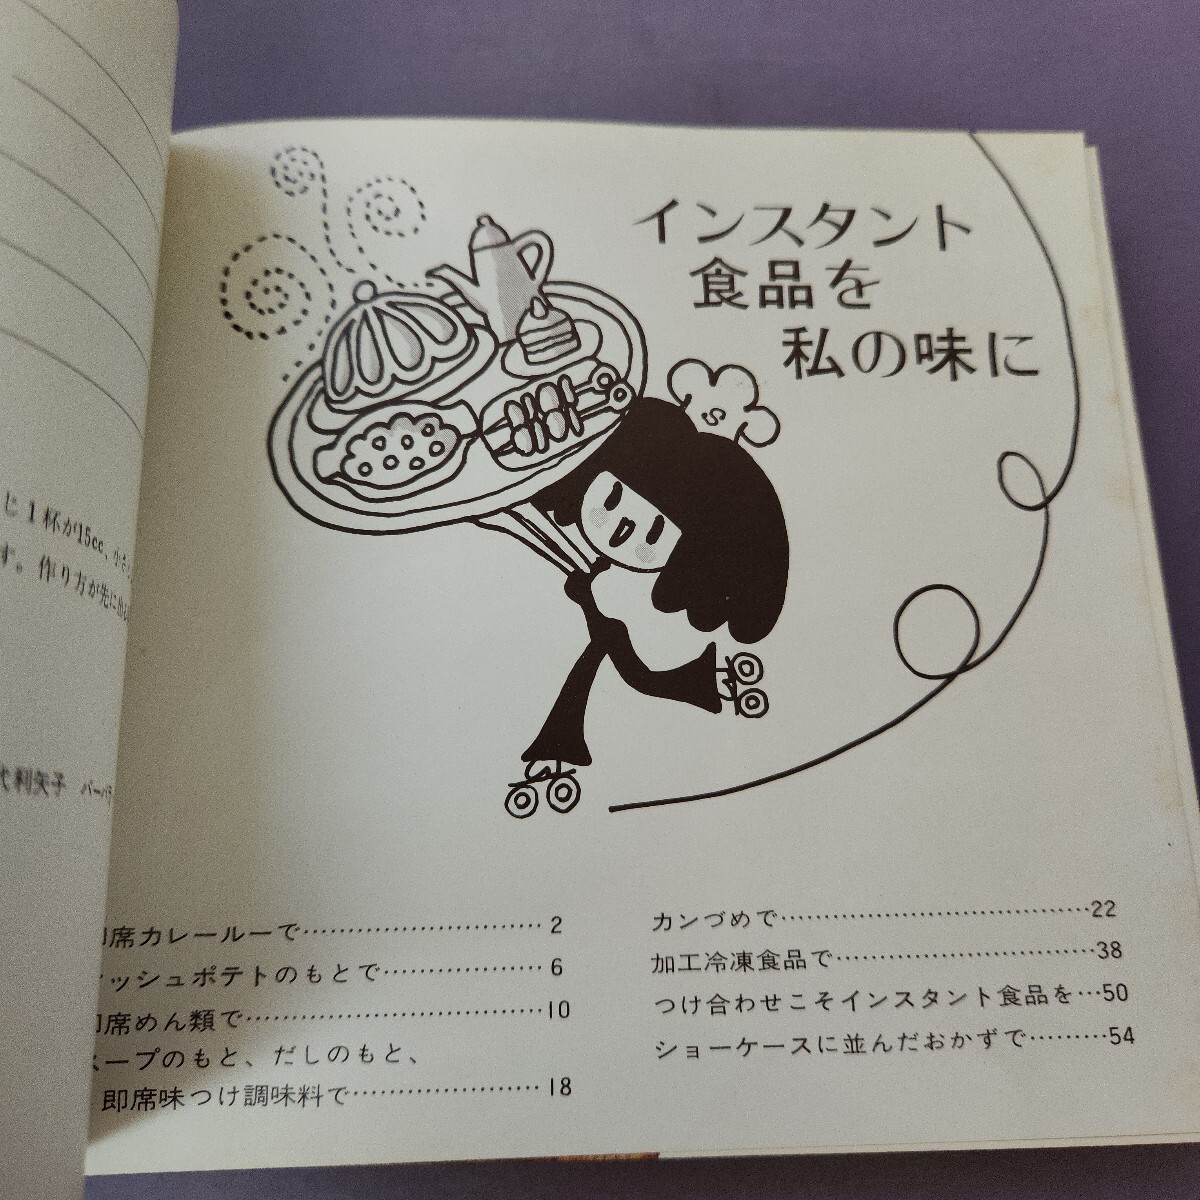 じ1杯が15cc、小さ
ず。作り方が先に
利矢子 バーバラ
インスタント
食品を
私の味に
S
即席カレールーで……………………… 2
ッシュポテトのもとで……………… 6
即席めん類で………………………………10
スープのもと、だしのもと、
即席味つけ調味料で…………………18
カンづめで………………………………22
加工冷凍食品で…………………………38
つけ合わせこそインスタント食品を…50
ショーケースに並んだおかずで………54